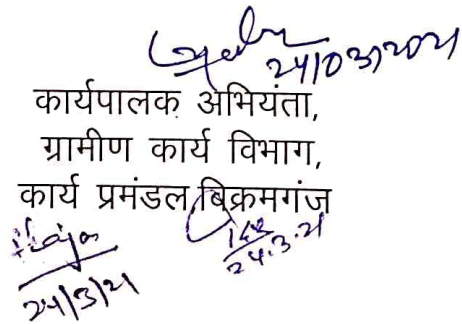 24/03/2021
कार्यपालक अभियंता,
ग्रामीण कार्य विभाग,
कार्य प्रमंडल, बिक्रमगंज
24/3/21
24.3.21